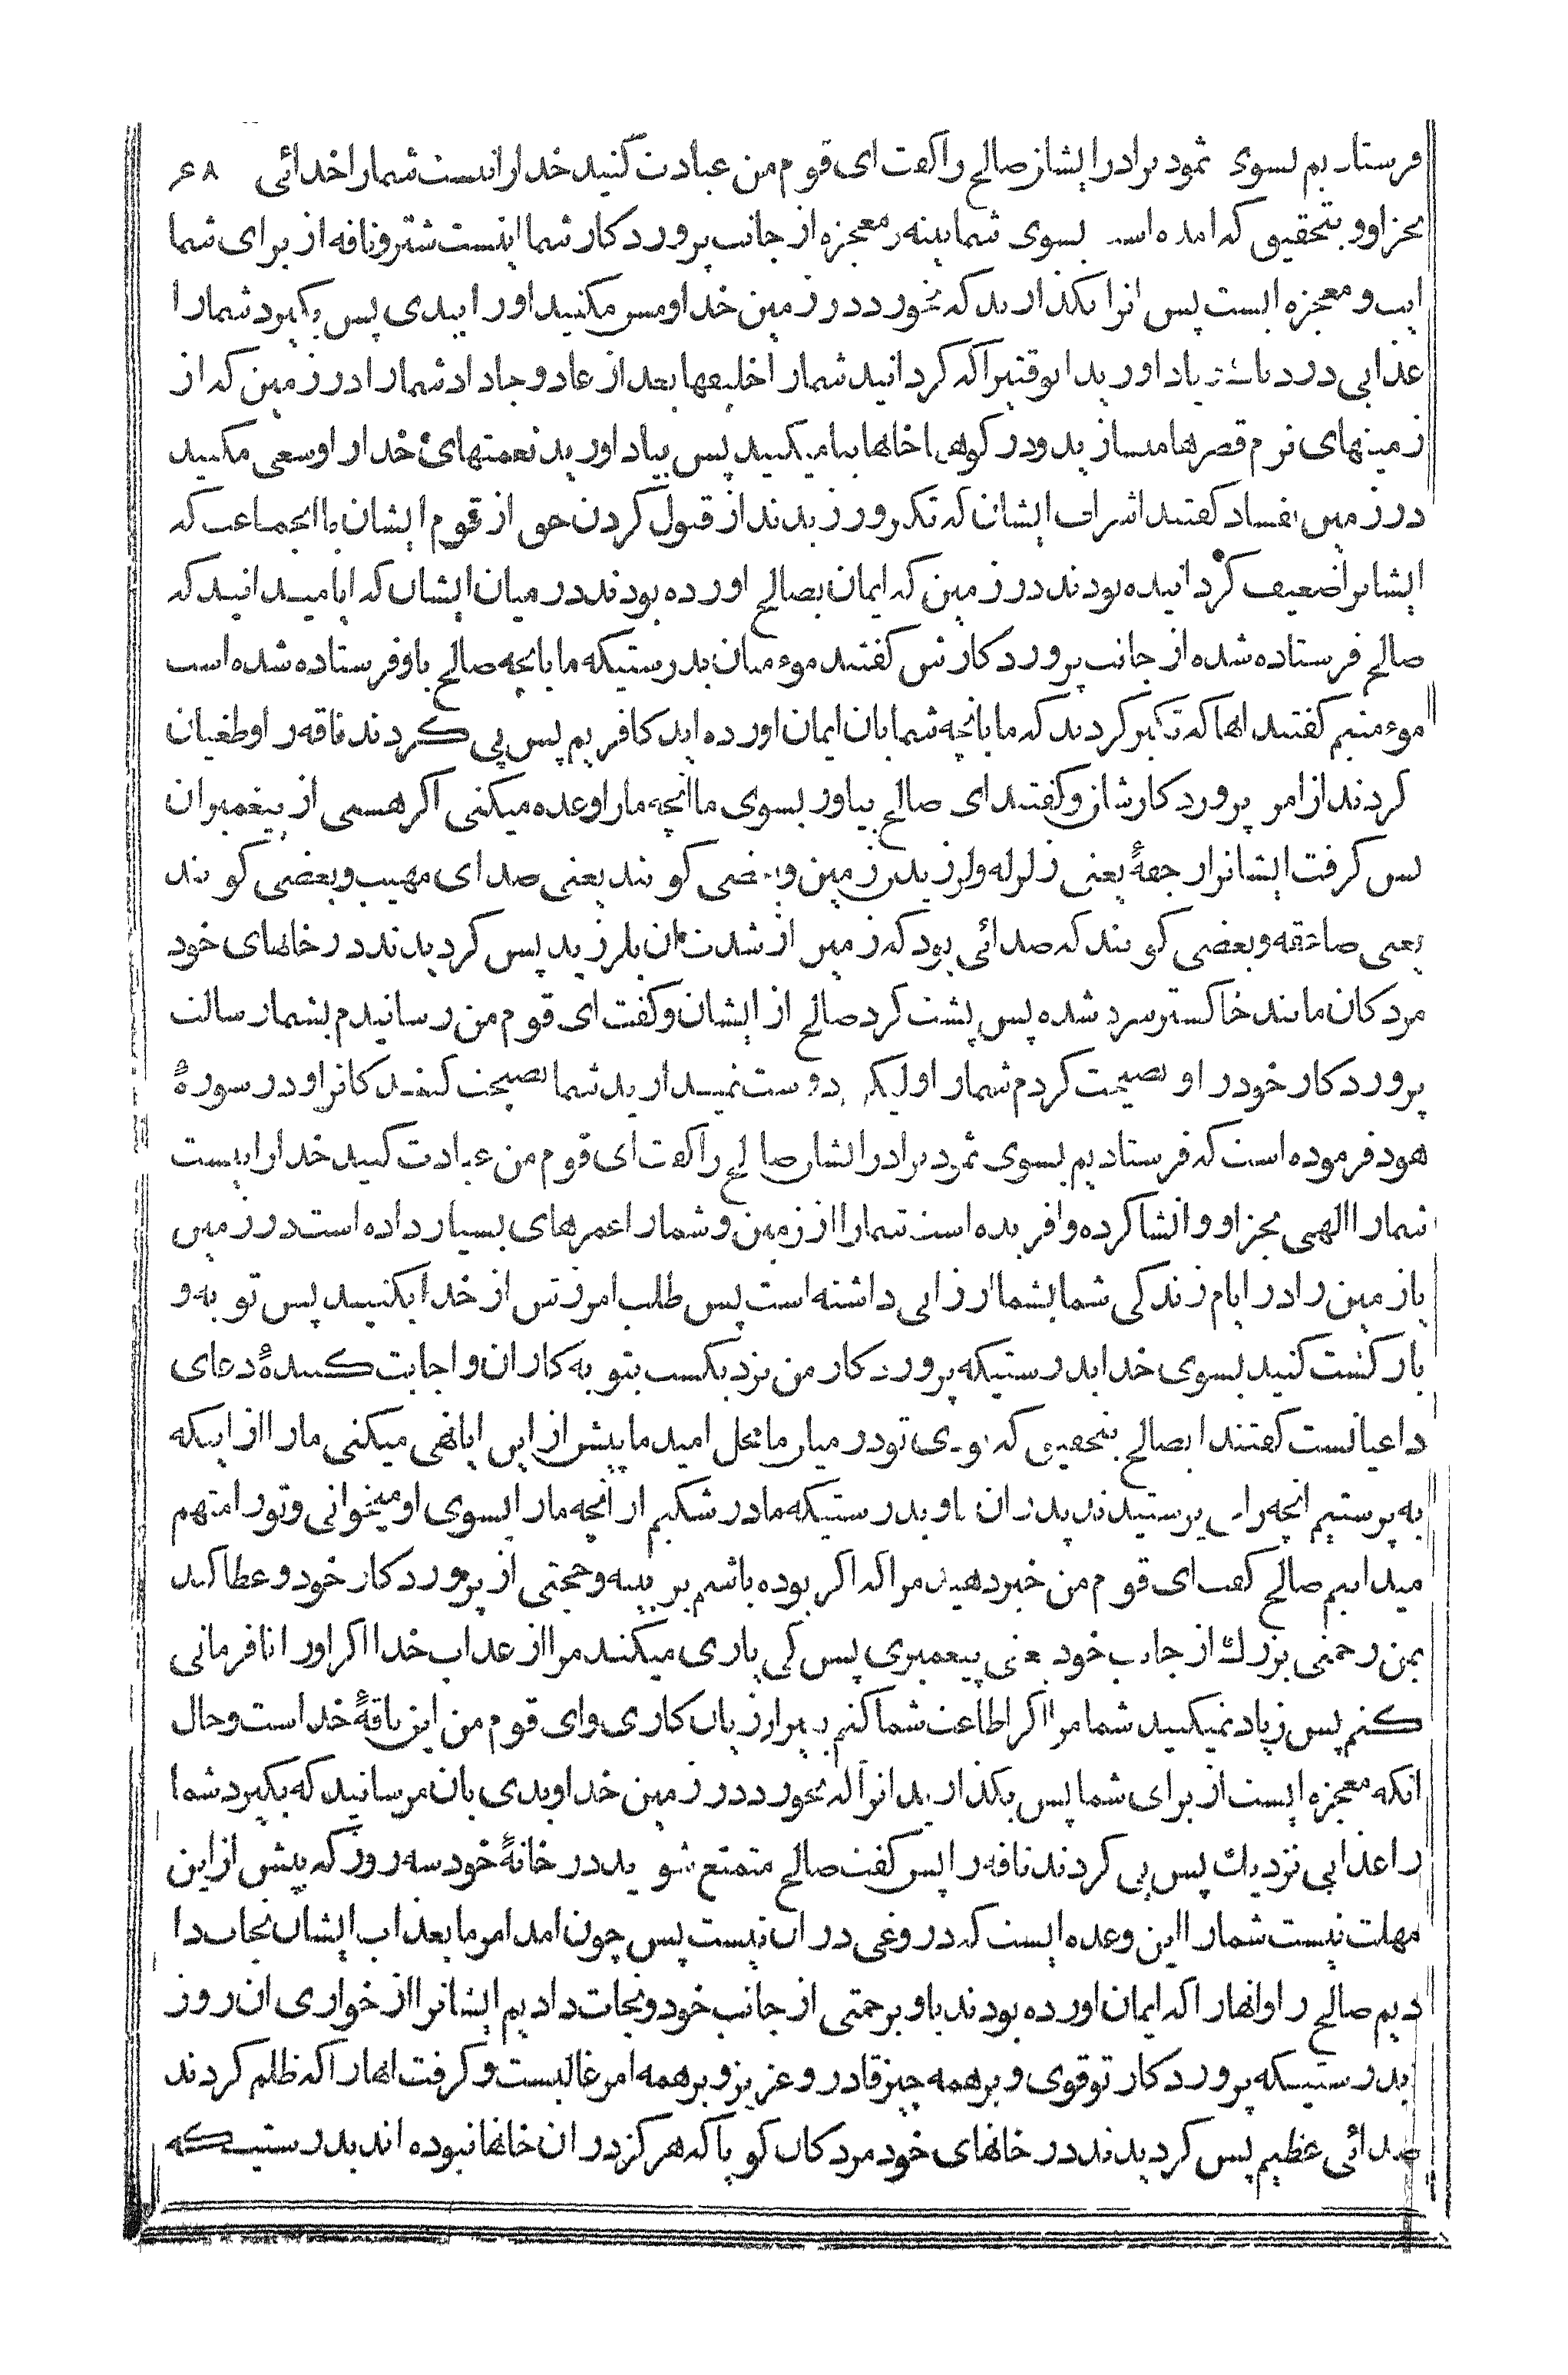 فرستادیم بسوی ثمود برادر ایشان صالح را کفت ای قوم من عبادت کنید خدا را نیست شما را خدائی ۶۸
بجز او و بتحقیق که امده است بسوی شما بینه و معجزه از جانب پروردکار شما اینست شتر و ناقه از برای شما
ایت و معجزه ایست پس انرا بکذارید که بخورد در زمین خدا و مس مکنید او را ببدی پس بکیرد شما را
عذابی دردناك و بیاد اورید ان وقتیرا که کردانید شما را خلیفها بعد از عاد و جا داد شما را در زمین که از
زمینهای نرم قصرها میسازید و در کوهها خانها بنا میکنید پس بیاد اورید نعمتهای خدا را و سعی مکنید
در زمین بفساد کفتند اشراف ایشان که تکبر ورزیدند از قبول کردن حق از قوم ایشان با انجماعت که
ایشانرا ضعیف کردانیده بودند در زمین که ایمان بصالح اورده بودند در میان ایشان که ایا میدانید که
صالح فرستاده شده از جانب پروردکارش کفتند موءمنان بدرستیکه ما بانچه صالح باو فرستاده شده است
موءمنیم کفتند انها که تکبر کردند که ما بانچه شما بان ایمان اورده اید کافریم پس پی کردند ناقه را و طغیان
کردند از امر پروردکارشان و کفتند ای صالح بیاور بسوی ما انچه ما را وعده میکنی اکر هستی از پیغمبران
پس کرفت ایشانرا رجفهٔ یعنی زلزله و لرزیدن زمین و بعضی کویند یعنی صدای مهیب و بعضی کویند
یعنی صاعقه و بعضی کویند که صدائی بود که زمین از شدت ان بلرزید پس کردیدند در خانهای خود
مردکان مانند خاکستر سرد شده پس پشت کرد صالح از ایشان و کفت ای قوم من رسانیدم بشما رسالت
پروردکار خود را و نصیحت کردم شما را و لیکن دوست نمیدارید شما نصیحت کنندکانرا و در سورهٔ
هود فرموده است که فرستادیم بسوی ثمود برادر ایشان صالح را کفت ای قوم من عبادت کنید خدا را نیست
شما را الهی بجز او و انشا کرده و افریده است شما را از زمین و شما را عمرهای بسیار داده است در زمین
یا زمین را در ایام زندکی شما بشما ارزانی داشته است پس طلب امرزش از خدا بکنید پس توبه و
بازکشت کنید بسوی خدا بدرستیکه پروردکار من نزدیکست بتوبه کاران و اجابت کنندهٔ دعای
داعیانست کفتند ایصالح بتحقیق که بودی تو در میان ما محل امید ما پیش از این ایا نهی میکنی ما را از اینکه
به پرستیم انچه را می پرستیدند پدران ما و بدرستیکه ما در شکیم از انچه ما را بسوی او میخوانی و تو را متهم
میدانیم صالح کفت ای قوم من خبر دهید مرا که اکر بوده باشم بر بینه و حجتی از پروردکار خود و عطا کند
بمن رحمتی بزرك از جانب خود یعنی پیغمبری پس کی یاری میکند مرا از عذاب خدا اکر او را نافرمانی
کنم پس زیاد نمیکنید شما مرا اکر اطاعت شما کنم بغیر از زیان کاری و ای قوم من این ناقهٔ خداست و حال
انکه معجزه ایست از برای شما پس بکذارید انرا که بخورد در زمین خدا و بدی بان مرسانید که بکیرد شما
را عذابی نزدیك پس پی کردند ناقه را پس کفت صالح متمتع شوید در خانهٔ خود سه روز که پیش از این
مهلت نیست شما را این وعده ایست که دروغی در ان نیست پس چون امد امر ما بعذاب ایشان نجات دا
دیم صالح را و انها را که ایمان اورده بودند باو برحمتی از جانب خود و نجات دادیم ایشانرا از خواری ان روز
بدرستیکه پروردکار تو قوی و بر همه چیز قادر و عزیز و بر همه امر غالبست و کرفت انها را که ظلم کردند
صدائی عظیم پس کردیدند در خانهای خود مردکان کویا که هرکز در ان خانها نبوده اند بدرستیکه